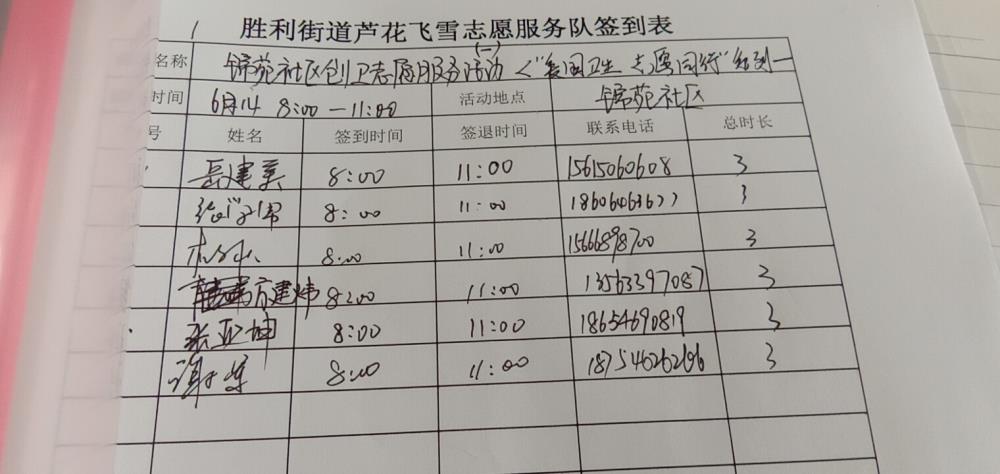 胜利街道芦花飞雪志愿服务队签到表
名称 锦苑社区创卫志愿服务活动(一)<"爱国卫生 志愿同行"系列一
时间 6月14 8:00—11:00 活动地点 锦苑社区
号 姓名 签到时间 签退时间 联系电话 总时长
岳建美 8:00 11:00 15615060608 3
8:00 11:00 18606463677 3
8:00 11:00 15666898700 3
方建炜 8:00 11:00 13563397087 3
张亚坤 8:00 11:00 18654690819 3
谢 8:00 11:00 3